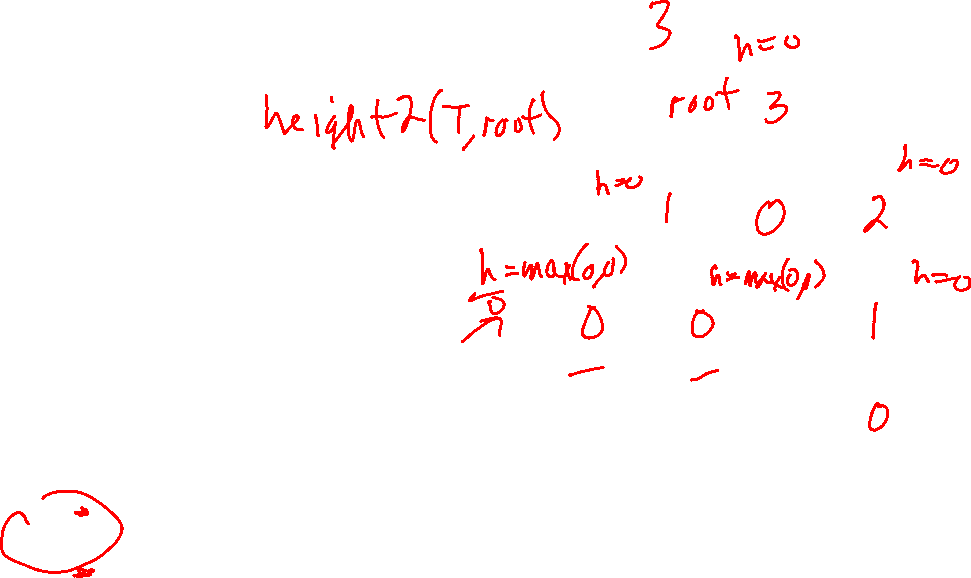 3
h=0
height2(T,root)
root 3
h=0
h=0
1 0 2
h=max(0,0)
h=max(0,
h=0
0
0 0 1
0